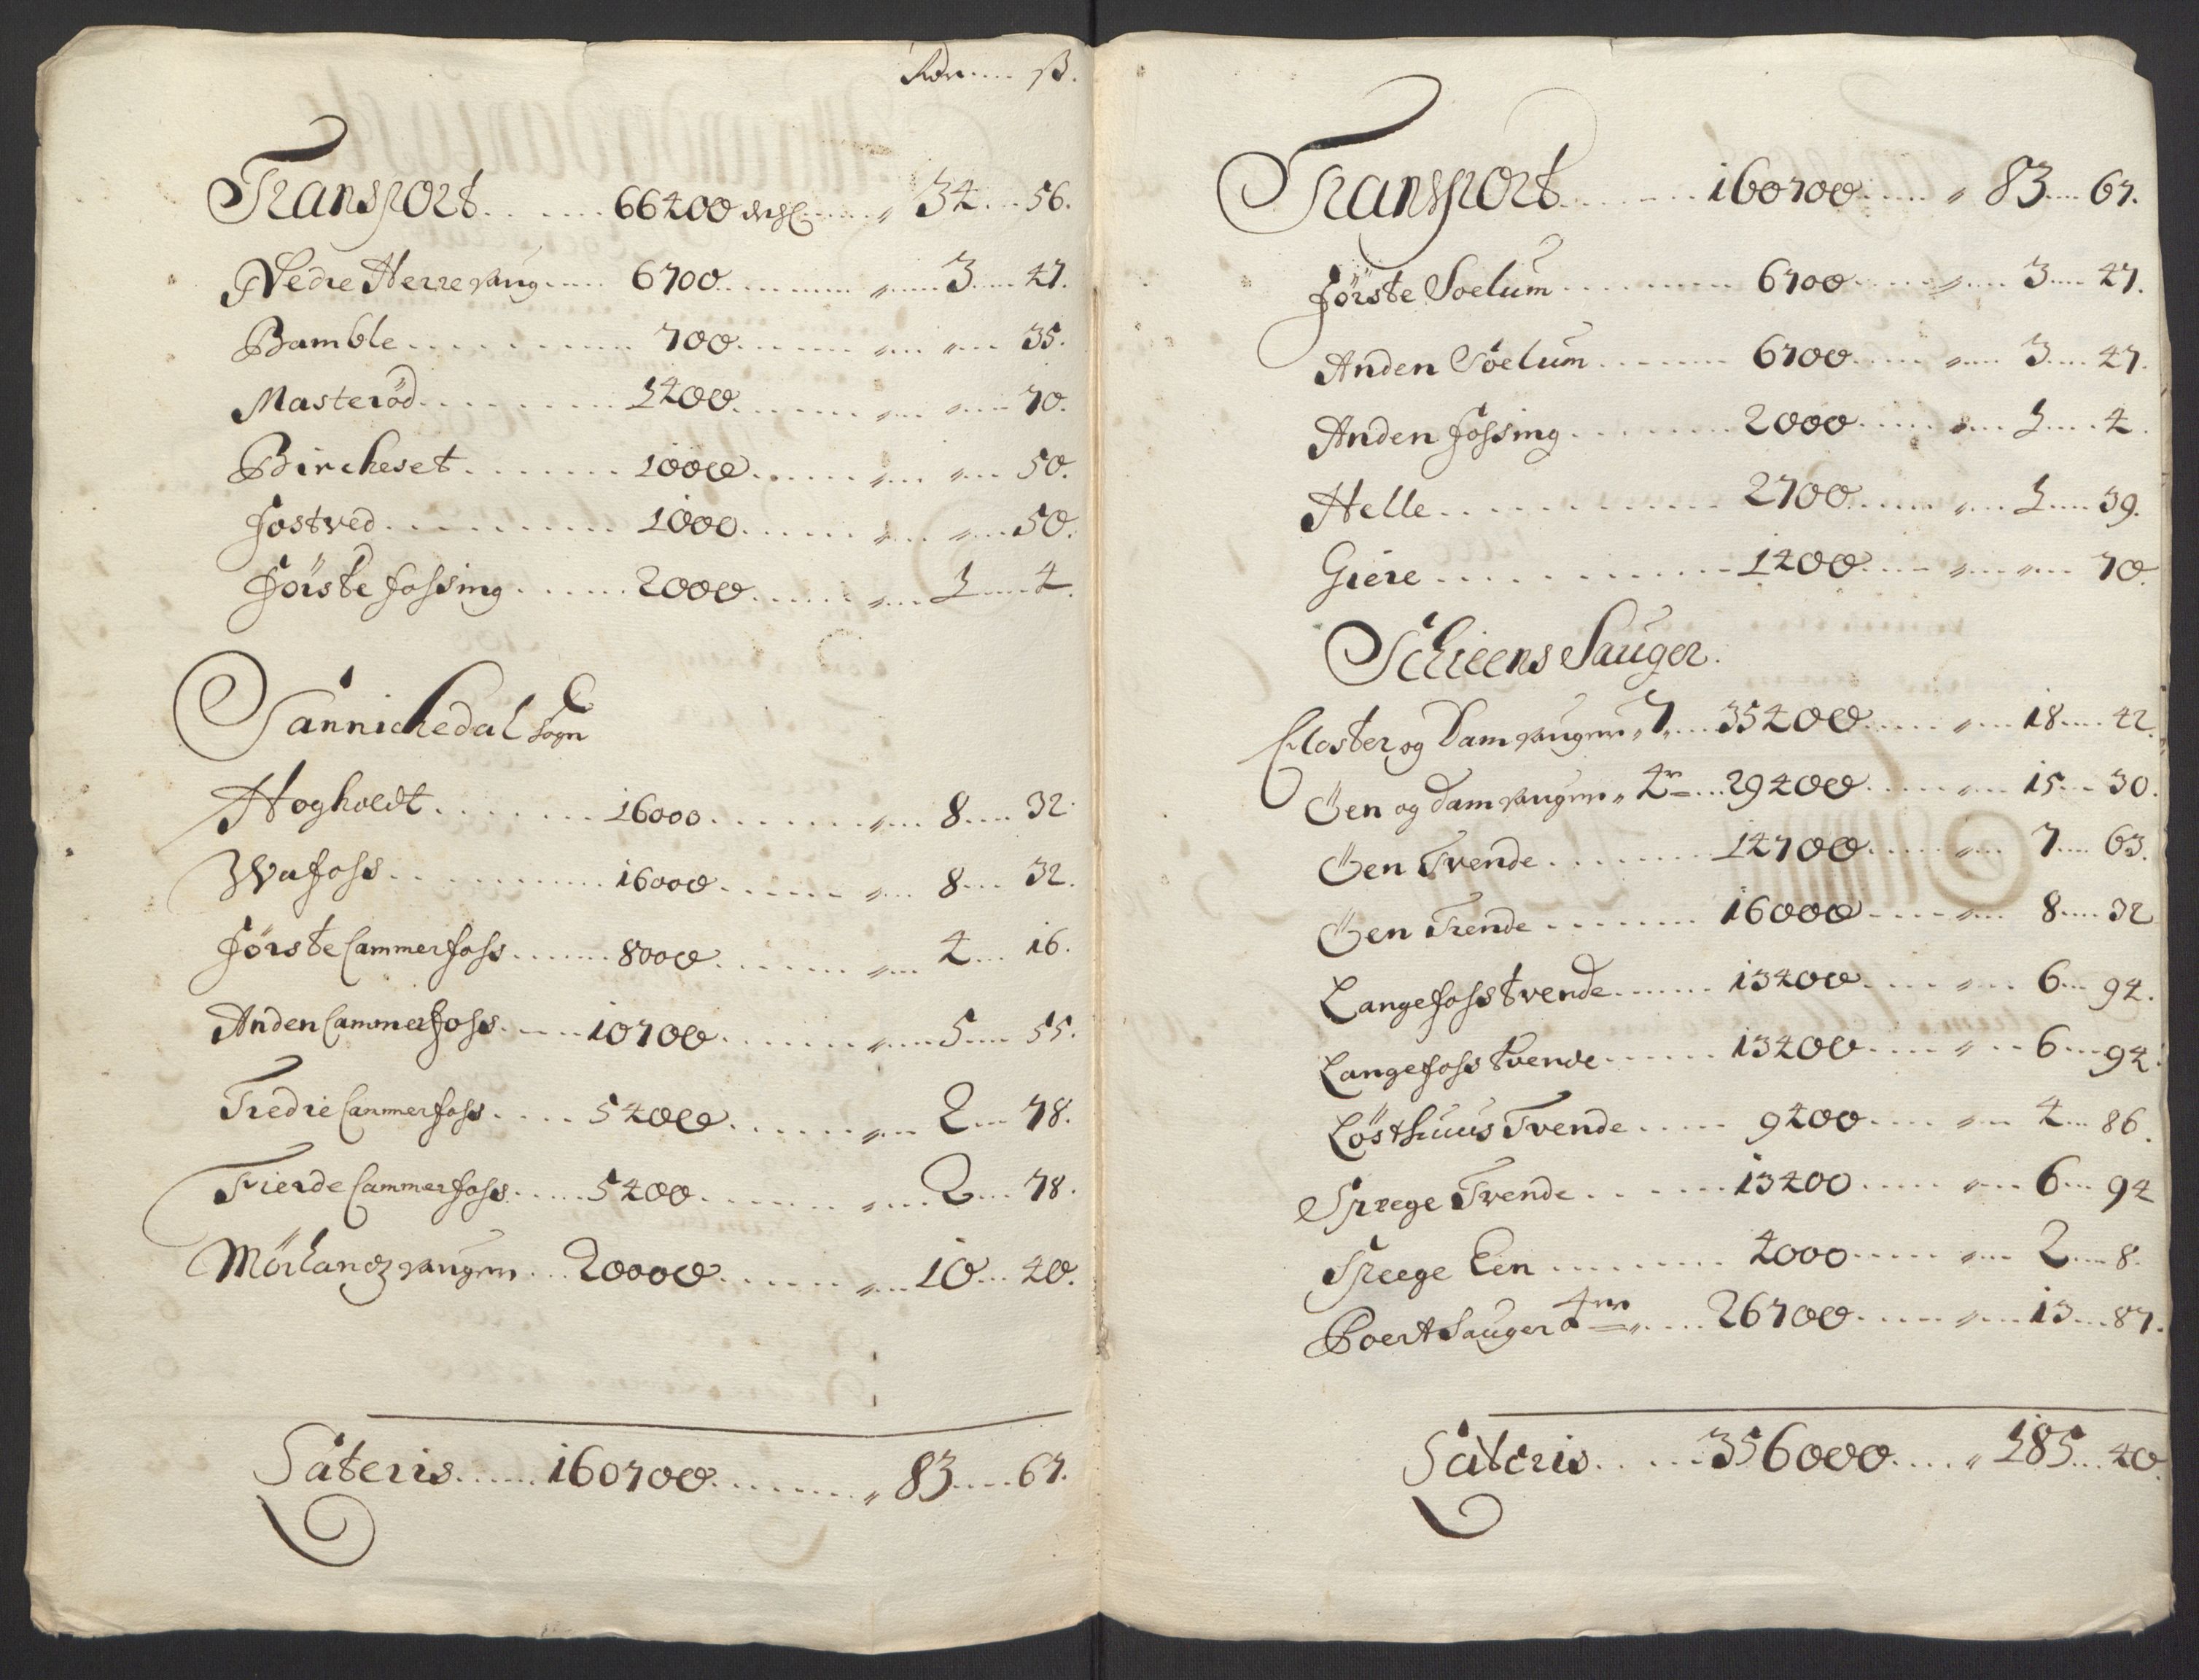 Rdr ß.
Transport 66400 dehl. " 34 56.
Nedre Herre saug 6700 " 3 47.
Bamble 700 " " 35.
Masteröd 1400 " " 70.
Bircheset 1000 " " 50.
Fostved 1000 " " 50.
Förste fossing 2000 " 1 4.
Sannichedal Sogn
Hogholdt 16000 " 8 32.
Wafoss 16000 " 8 32.
Förste Cammerfoss 8000 " 4 16.
Anden Cammerfoss 10700 " 5 55.
Tredie Cammerfoss 5400 " 2 78.
Fierde Cammerfoss 5400 " 2 78.
Mörlandz saugen 20000 " 10 40.
Lateris 160700 " 83 67.
Transport 160700 " 83 67.
Förste Soelum 6700 " 3 47.
Anden Soelum 6700 " 3 47.
Anden fossing 2000 " 1 4.
Helle 2700 " 1 39.
Giere 1400 " " 70.
Schieens Sauger.
Closter og Damsaugen " 7 35400 " 18 42.
Öen og damsaugen " 4re 29400 " 15 30.
Öen Tvende 14700 " 7 63.
Öen Trende 16000 " 8 32
Langefoss tvende 13400 " 6 94.
Langefoss tvende 13400 " 6 94.
Lösthuus Tvende 9400 " 4 86.
Sprege Tvende 13400 " 6 94
Spreege Een 4000 " 2 8.
Poert Sauger 4re " 26700 " 13 87.
Lateris 356000 " 185 40.